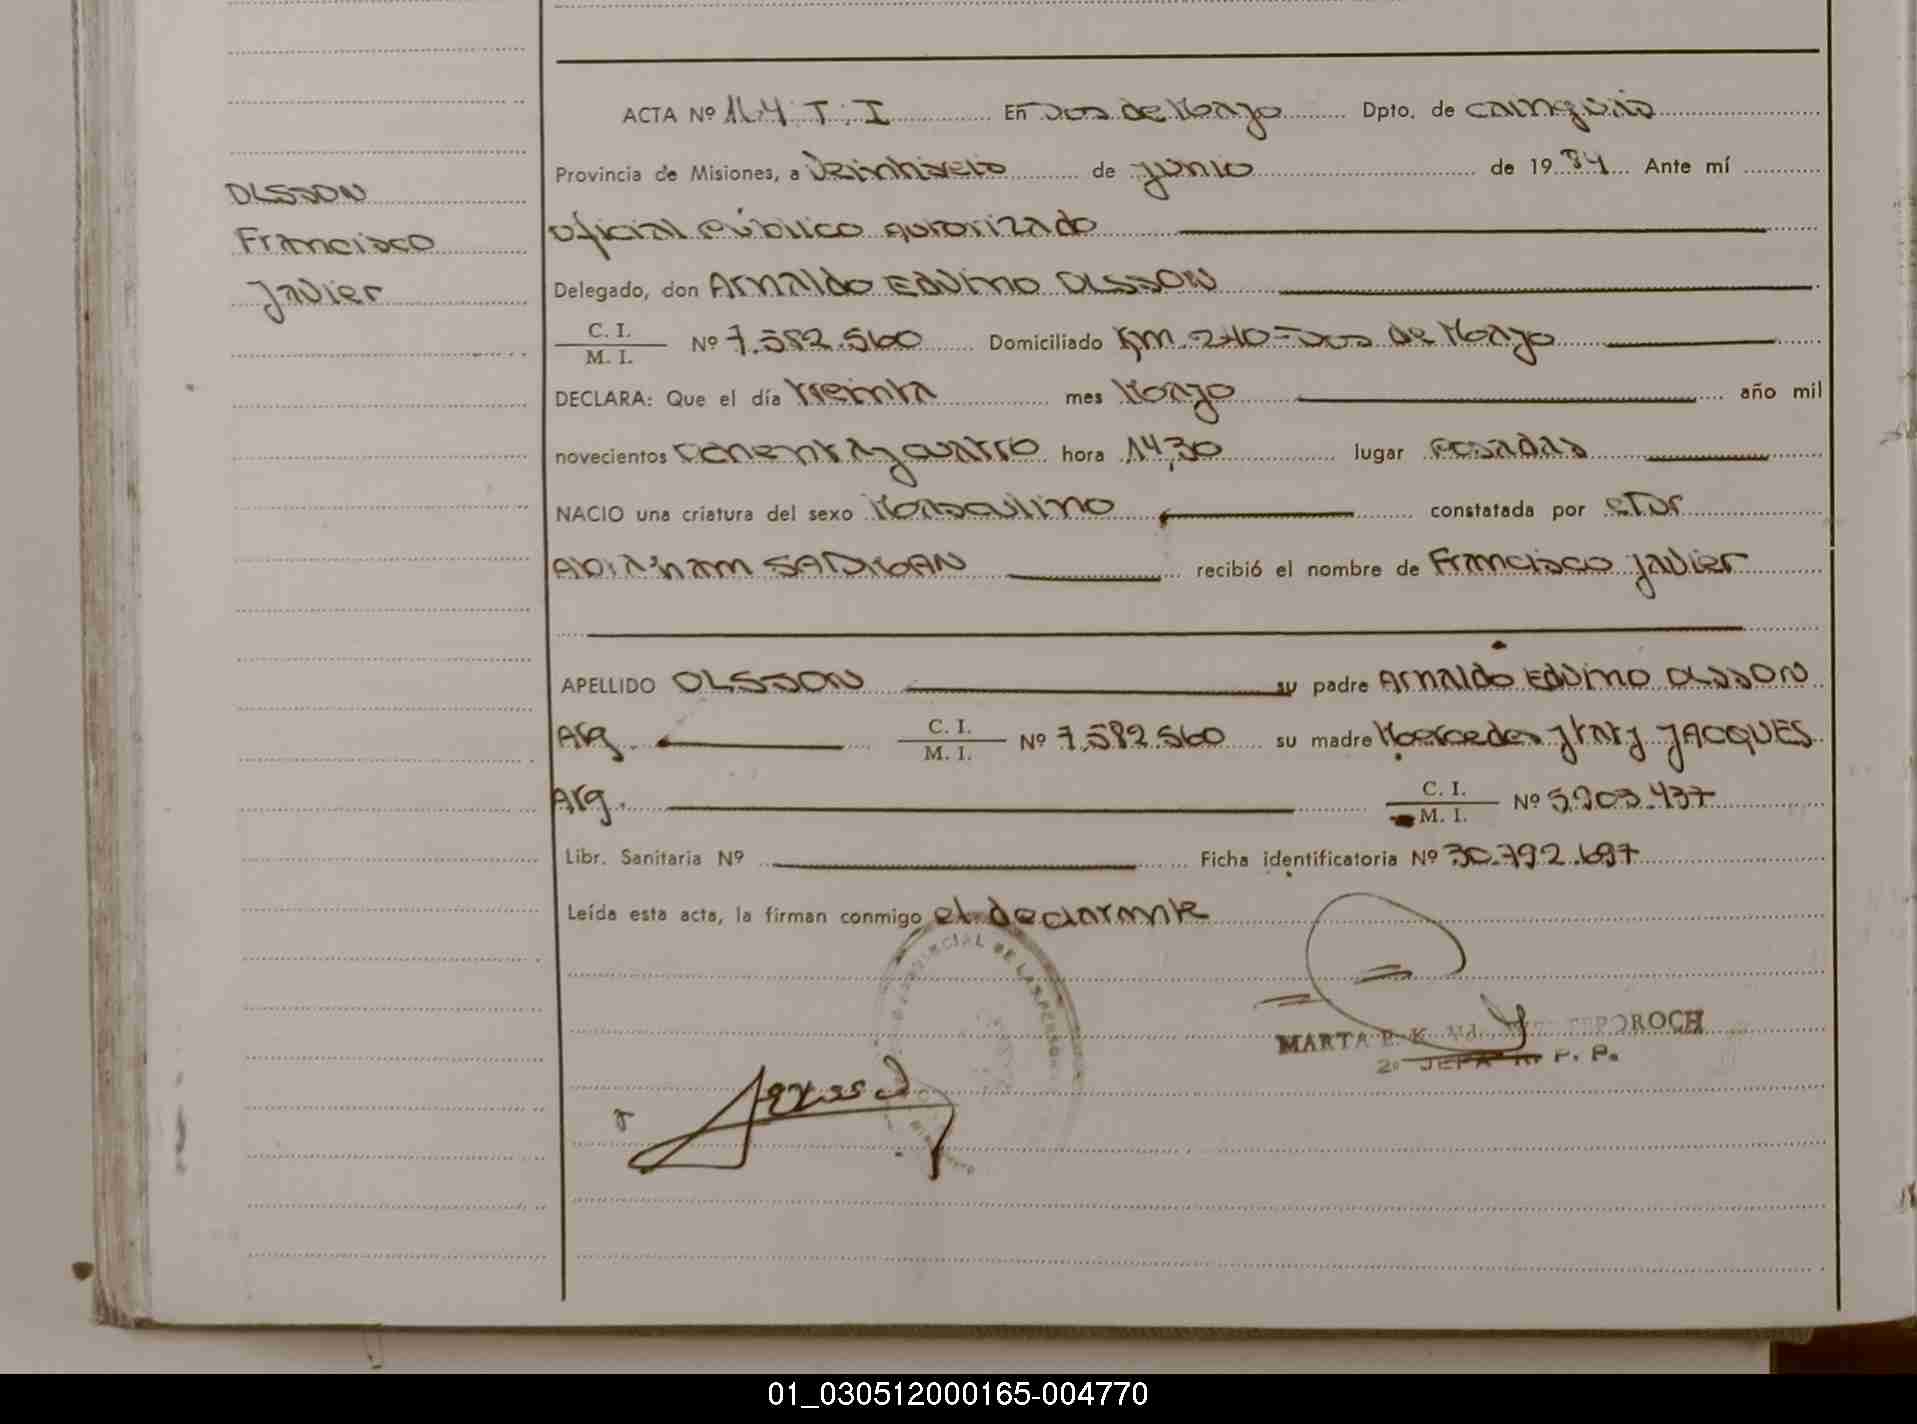 ACTA Nº 164 T: I En Dos de Mayo Dpto. de Cainguás
Provincia de Misiones, a Veintiseis de junio de 1984 Ante mí
OLSSON
Francisco
Javier
oficial público autorizado
Delegado, don Arnaldo Edvino OLSSON
C. I.
M. I. Nº 7.582.560 Domiciliado Km. 240-Dos de Mayo
DECLARA: Que el día treinta mes Mayo año mil
novecientos ochenta y cuatro hora 14,30 lugar Posadas
NACIO una criatura del sexo Masculino constatada por
recibió el nombre de Francisco Javier
APELLIDO OLSSON su padre Arnaldo Edvino OLSSON
Arg. C. I.
M. I. Nº 7.582.560 su madre Mercedes JACQUES
Arg. C. I.
M. I. Nº 5.203.437
Libr. Sanitaria Nº Ficha identificatoria Nº 30.792.697
Leída esta acta, la firman conmigo el declarante
PROVINCIAL DE LAS PERSONAS
MARTA
2º JEFA R. P. P.
01_030512000165-004770